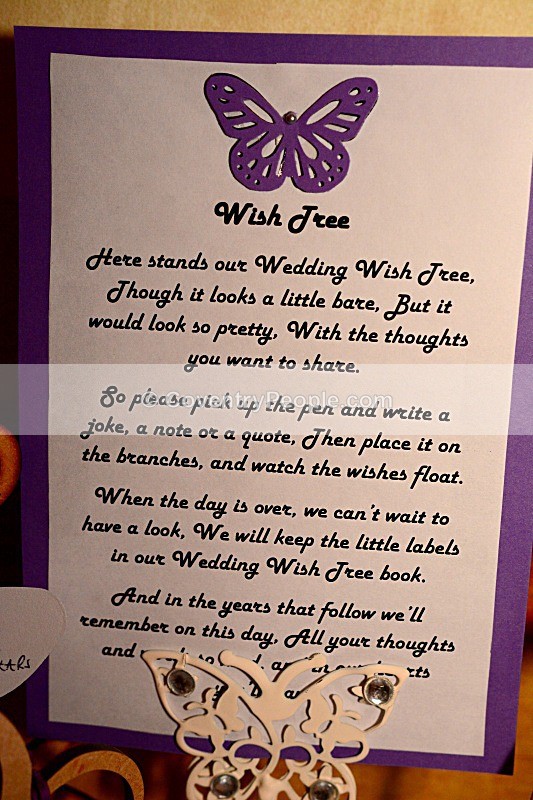 Wish Tree
Here stands our Wedding Wish Tree,
Though it looks a little bare, But it
would look so pretty, With the thoughts
you want to share.
© CoventryPeople.com
So please pick up the pen and write a
joke, a note or a quote, Then place it on
the branches, and watch the wishes float.
When the day is over, we can't wait to
have a look, We will keep the little labels
in our Wedding Wish Tree book.
And in the years that follow we'll
remember on this day, All your thoughts
and